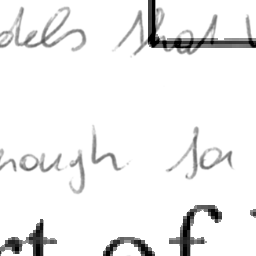 dels that
nough so
rt of